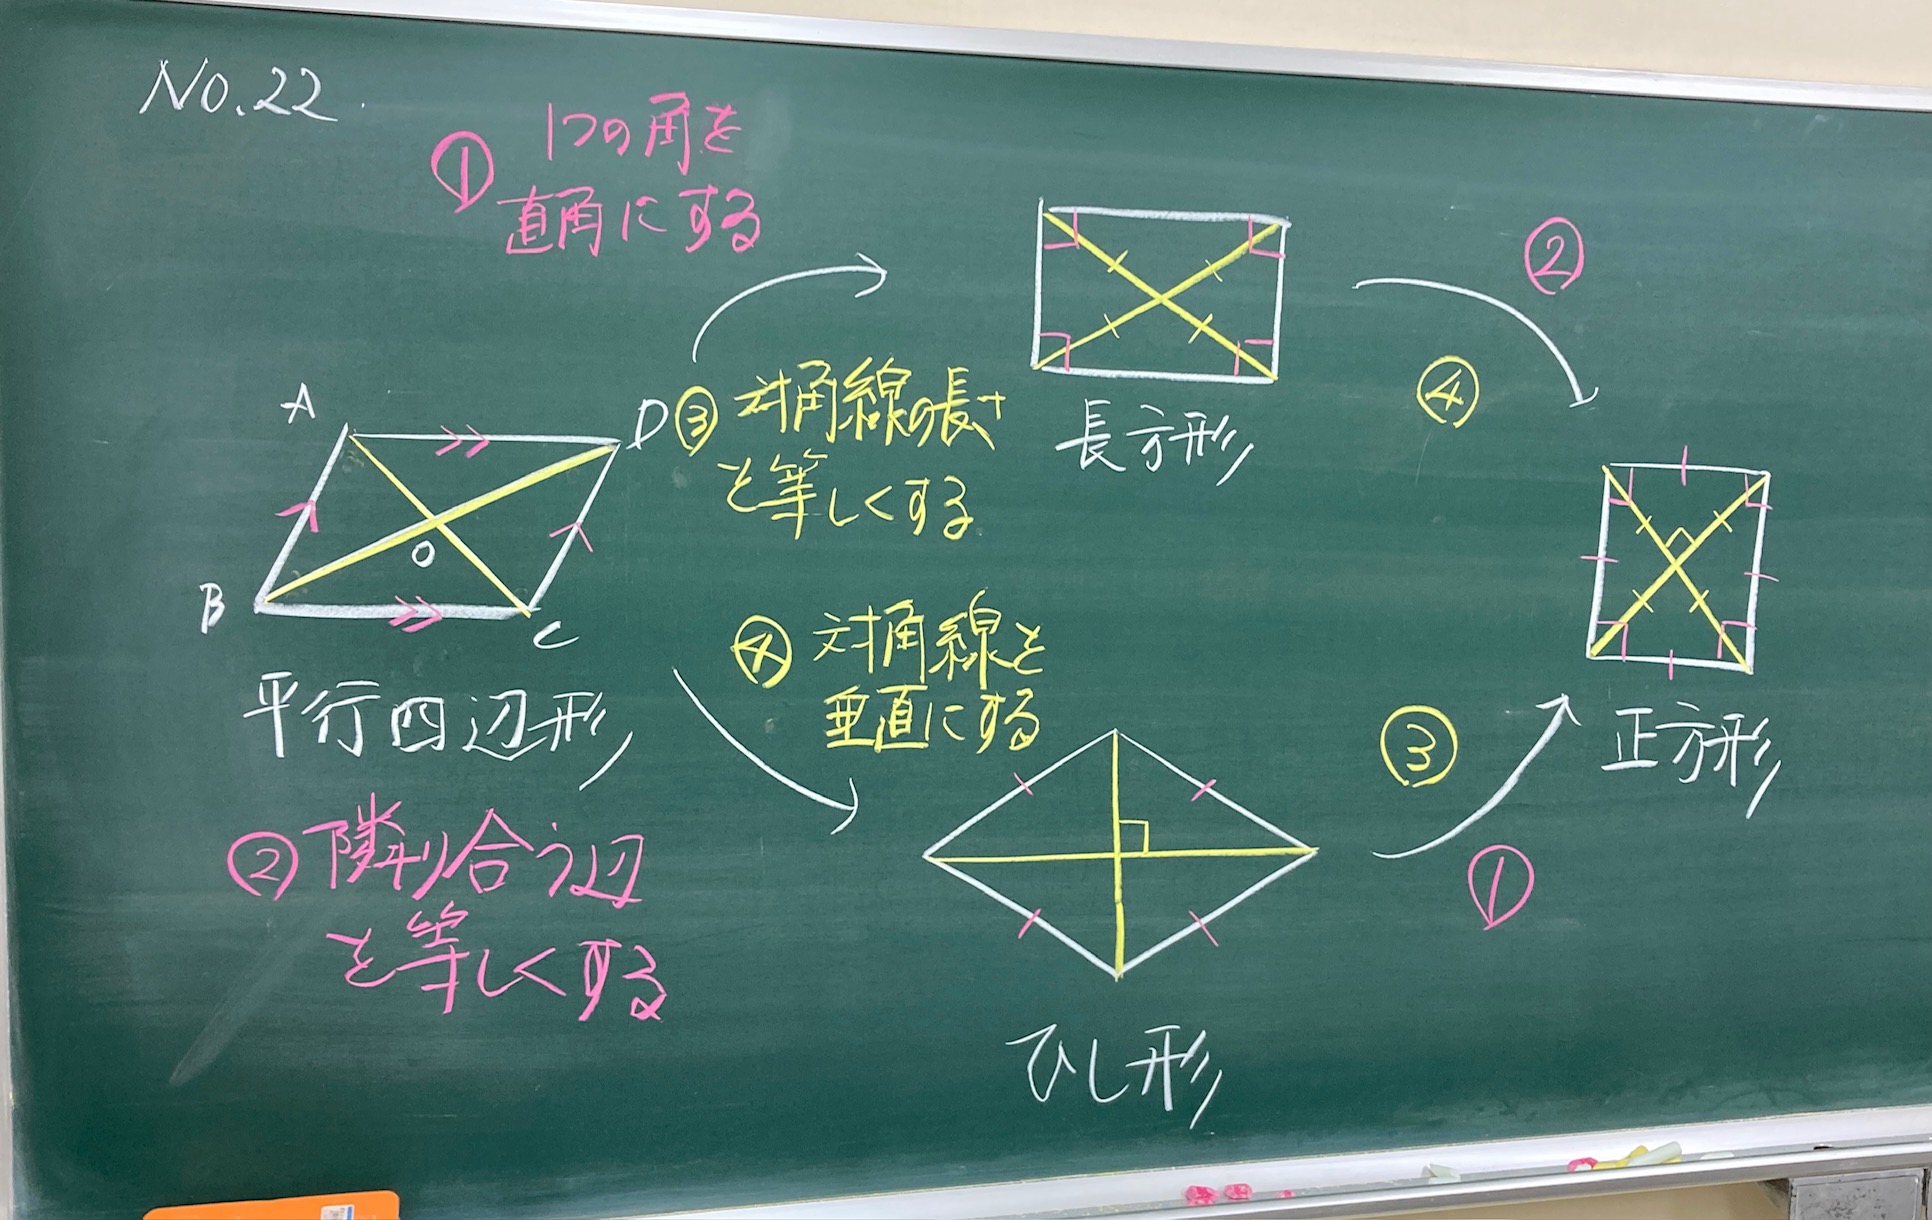 No.22
① 1つの角を
直角にする
②
A
D
③ 対角線の長さ
を等しくする
長方形
④
B
O
C
④ 対角線を
垂直にする
平行四辺形
③
正方形
② 隣り合う辺
を等しくする
①
ひし形